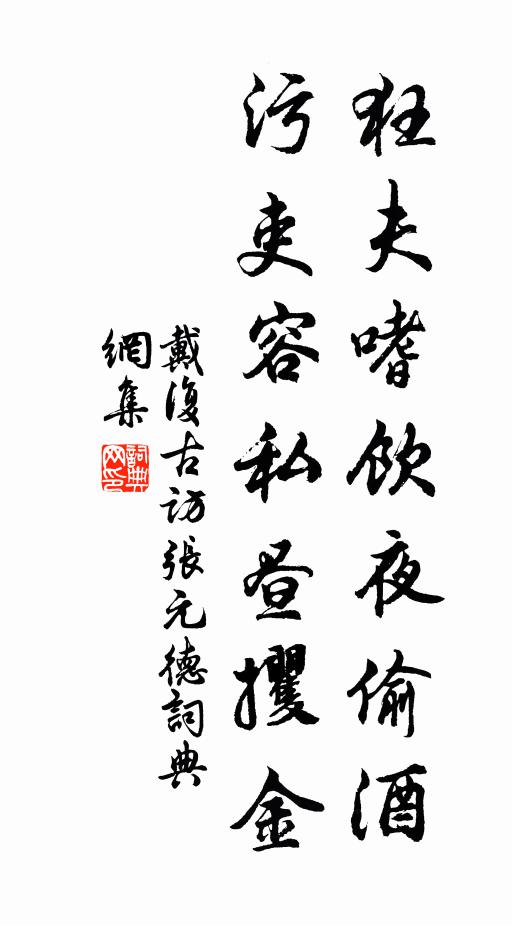 狂夫嗜飲夜偷酒
污吏容私昼攫金
戴復古訪張元德詞典
網集
詞典
网印